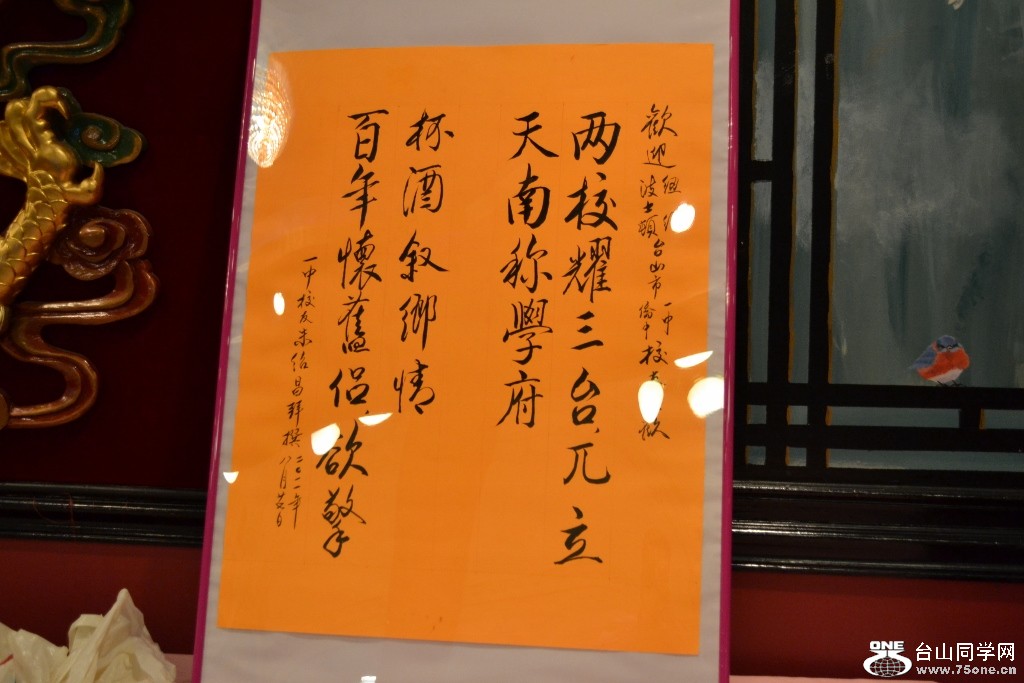 歡迎
波士頓
台山市一中
僑中校友
两校耀三台，兀立
天南称學府
杯酒叙鄉情
百年懷舊侣，欲擎
一中校友
昌拜撰
二〇一一年
八月廿日
ONE
台山同学网
www.75one.cn